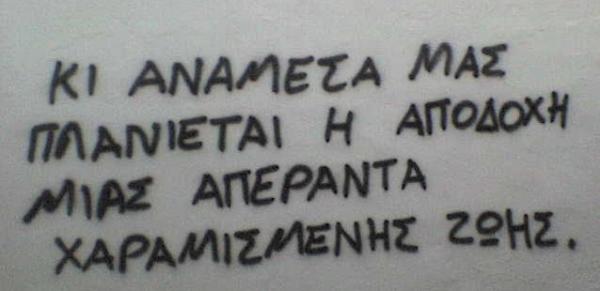 ΚΙ ΑΝΑΜΕΣΑ ΜΑΣ
ΠΛΑΝΙΕΤΑΙ Η ΑΠΟΔΟΧΗ
ΜΙΑΣ ΑΠΕΡΑΝΤΑ
ΧΑΡΑΜΙΣΜΕΝΗΣ ΖΩΗΣ.